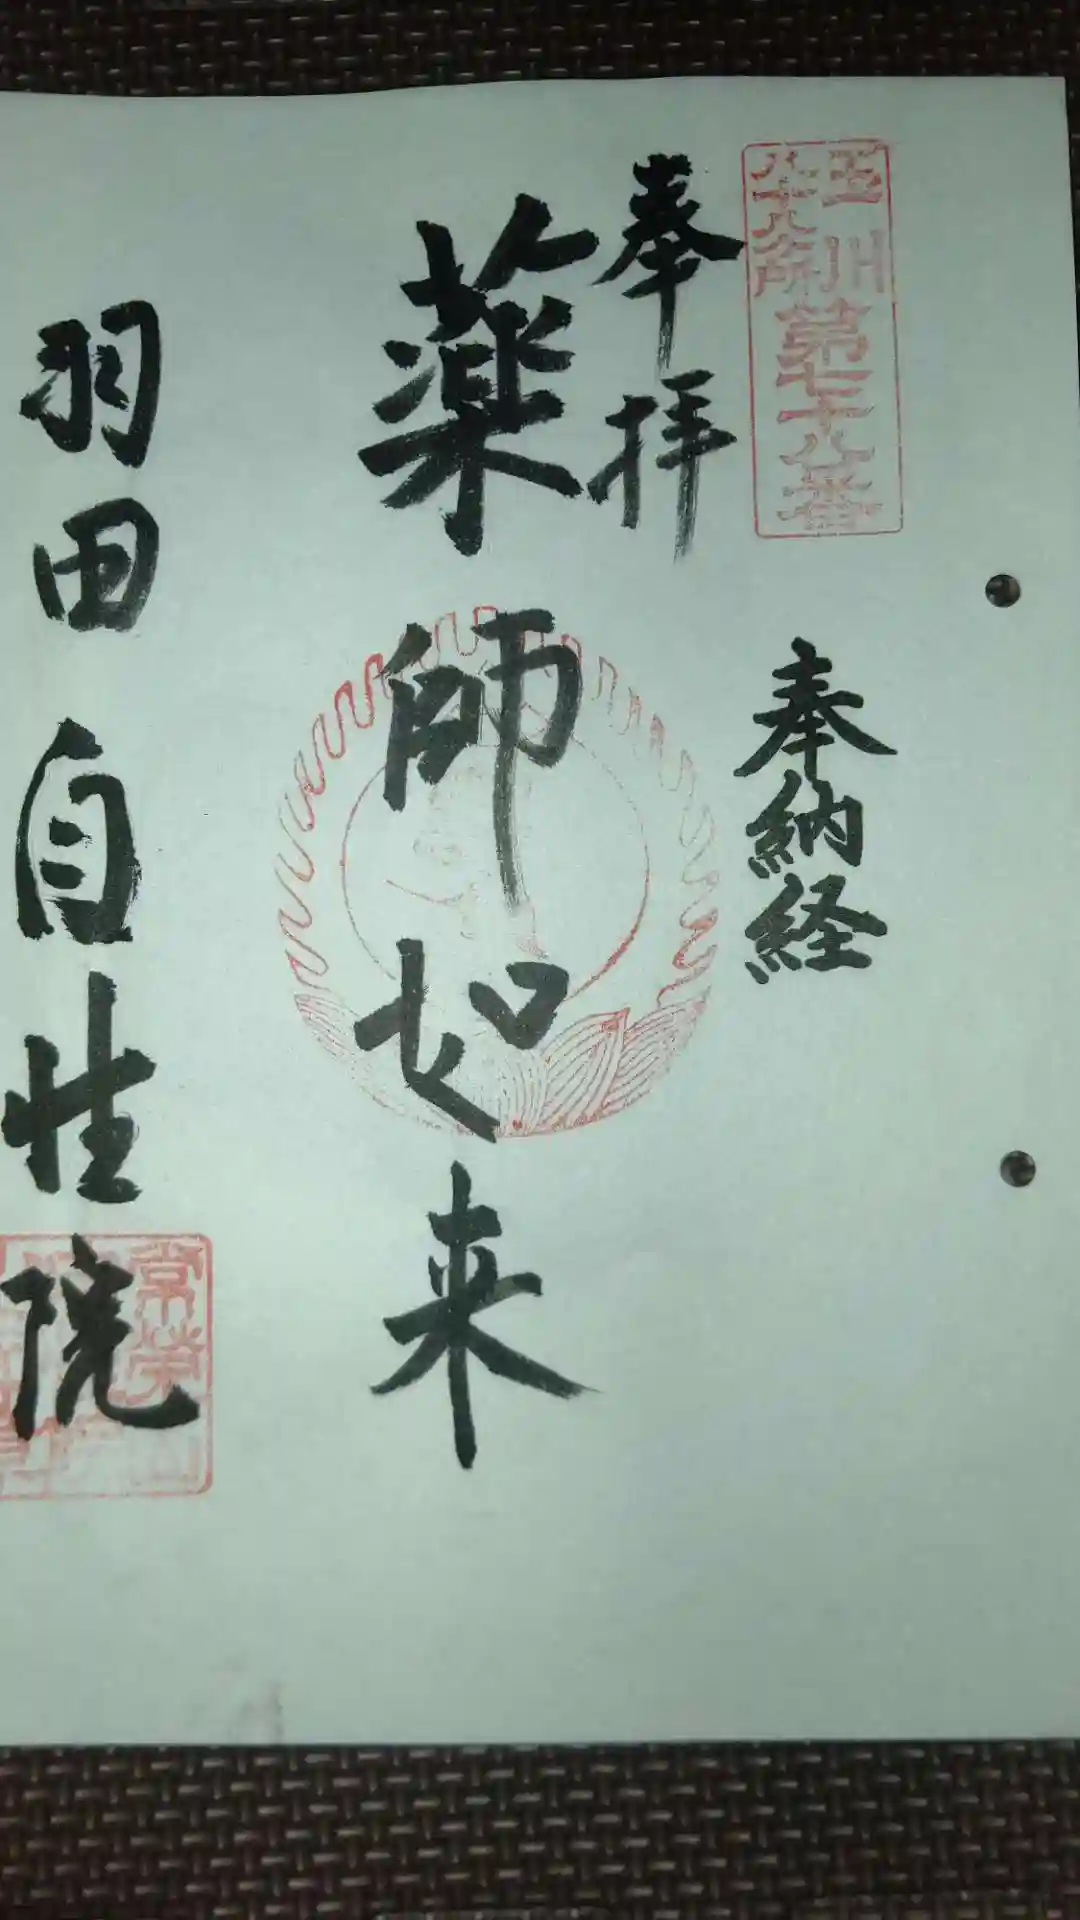 玉川
八十八ヶ所
第七十八番
奉納経
奉拝
薬師如来
羽田自性院
常栄山